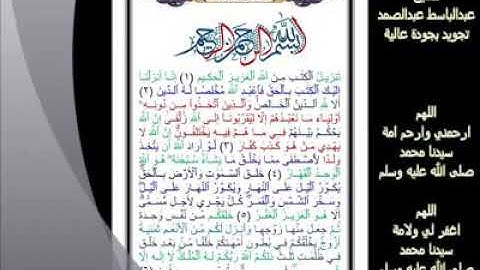 عبدالباسط عبدالصمد
تجويد بجودة عالية
بسم الله الرحمن الرحيم
تنزيل الكتب من الله العزيز الحكيم (١) إنا أنزلنا
إليك الكتب بالحق فاعبد الله مخلصا له الدين (٢)
ألا لله الدين الخالص والذين اتخذوا من دونه
أولياء ما نعبدهم إلا ليقربونا إلى الله زلفى إن الله
يحكم بينهم في ما هم فيه يختلفون إن الله لا
يهدي من هو كذب كفار (٣) لو أراد الله أن يتخذ
ولدا لاصطفى مما يخلق ما يشاء سبحنه هو الله
الوحد القهار (٤) خلق السموت والأرض بالحق
يكور اليل على النهار ويكور النهار على اليل
وسخر الشمس والقمر كل يجري لأجل مسمى
ألا هو العزيز الغفر (٥) خلقكم من نفس وحدة
ثم جعل منها زوجها وأنزل لكم من الأنعم ثمنية
أزوج يخلقكم في بطون أمهتكم خلقا من بعد خلق
في ظلمت ثلث ذلكم الله ربكم له الملك لا إله إلا
اللهم
ارحمني وارحم امة
سيدنا محمد
صلى الله عليه وسلم
اللهم
اغفر لي ولامة
سيدنا محمد
صلى الله عليه وسلم